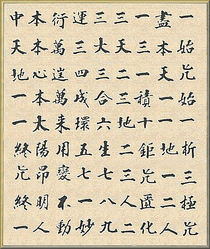 一始无始一析三極无
盡本天一一地一二人
一三一積十鉅无匱化
三天二三地二三人二
三大三合六生七八九
運三四成環五七一妙
衍萬往萬來用變不動
本本心本太陽昂明人
中天地一一終无終一